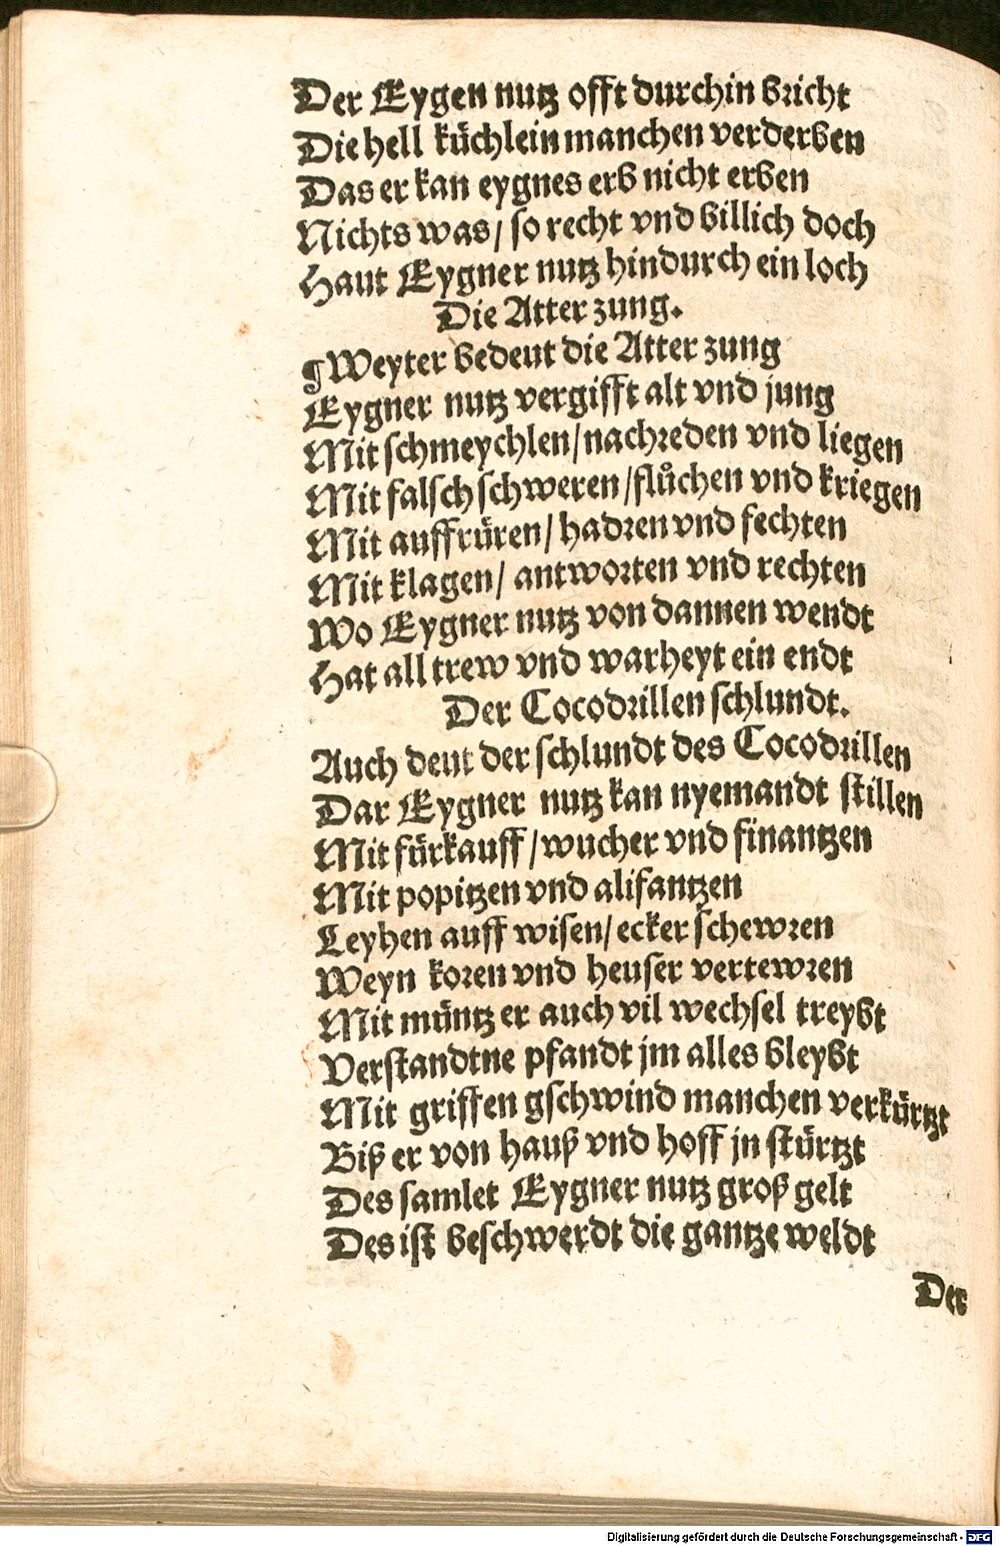 Der Eygen nutz offt durchin bricht
Die hell küchlein manchen verderben
Das er kan eygnes erb nicht erben
Nichts was / so recht vnd billich doch
Haut Eygner nutz hindurch ein loch
Die Atter zung.
¶ Weyter bedeut die Atter zung
Eygner nutz vergifft alt vnd jung
Mit schmeychlen / nachreden vnd liegen
Mit falsch schweren / flůchen vnd kriegen
Mit auffrüren / hadren vnd fechten
Mit klagen / antworten vnd rechten
Wo Eygner nutz von dannen wendt
Hat all trew vnd warheyt ein endt
Der Cocodrillen schlundt.
Auch deut der schlundt des Cocodrillen
Dar Eygner nutz kan nyemandt stillen
Mit fürkauff / wucher vnd finantzen
Mit popitzen vnd alifantzen
Leyhen auff wisen / ecker schewren
Weyn koren vnd heuser vertewren
Mit müntz er auch vil wechsel treybt
Verstandtne pfandt jm alles bleybt
Mit griffen gschwind manchen verkürtzt
Biß er von hauß vnd hoff jn stürtzt
Des samlet Eygner nutz groß gelt
Des ist beschwerdt die gantze weldt
Der
Digitalisierung gefördert durch die Deutsche Forschungsgemeinschaft - DFG